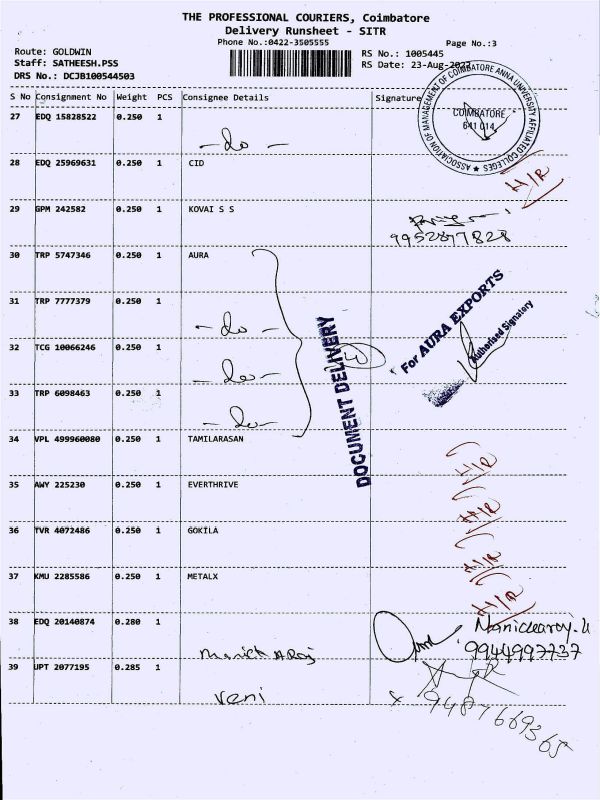 THE PROFESSIONAL COURIERS, Coimbatore
Delivery Runsheet - SITR
Phone No.:0422-3505555
Page No.:3
Route: GOLDWIN
RS No.: 1005445
Staff: SATHEESH.PSS
RS Date: 23-Aug-2022
DRS No.: DCJB100544503
S No Consignment No Weight PCS Consignee Details Signature
ASSOCIATION OF MANAGEMENT OF COIMBATORE ANNA UNIVERSITY AFFILIATED COLLEGES
COIMBATORE
641 014
27 EDQ 15828522 0.250 1
- do -
28 EDQ 25969631 0.250 1 CID
H/R
29 GPM 242582 0.250 1 KOVAI S S
9952877828
30 TRP 5747346 0.250 1 AURA
For AURA EXPORTS
Authorised Signatory
DOCUMENT DELIVERY
31 TRP 7777379 0.250 1
- do -
32 TCG 10066246 0.250 1
- do -
33 TRP 6098463 0.250 1
- do -
34 VPL 499960080 0.250 1 TAMILARASAN
H/R
35 AWY 225230 0.250 1 EVERTHRIVE
H/R
36 TVR 4072486 0.250 1 GOKILA
H/R
37 KMU 2285586 0.250 1 METALX
H/R
38 EDQ 20140874 0.280 1
Manick A Raj
Manickaroy.U
9944997737
39 UPT 2077195 0.285 1
Veni
9487669365